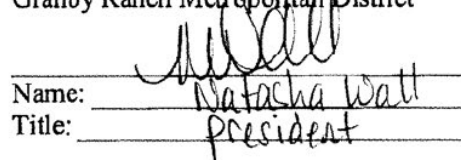 Granby Ranch Metropolitan District
Name: Natasha Wall
Title: president